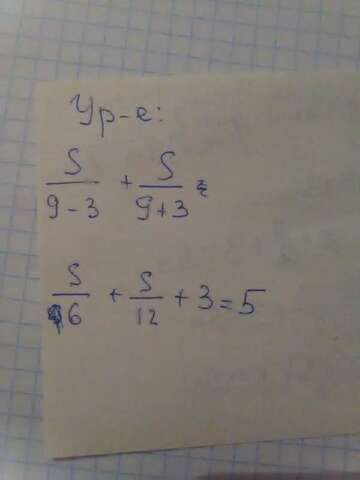 Ур-е:
S/(9-3) + S/(9+3) =
S/6 + S/12 + 3 = 5